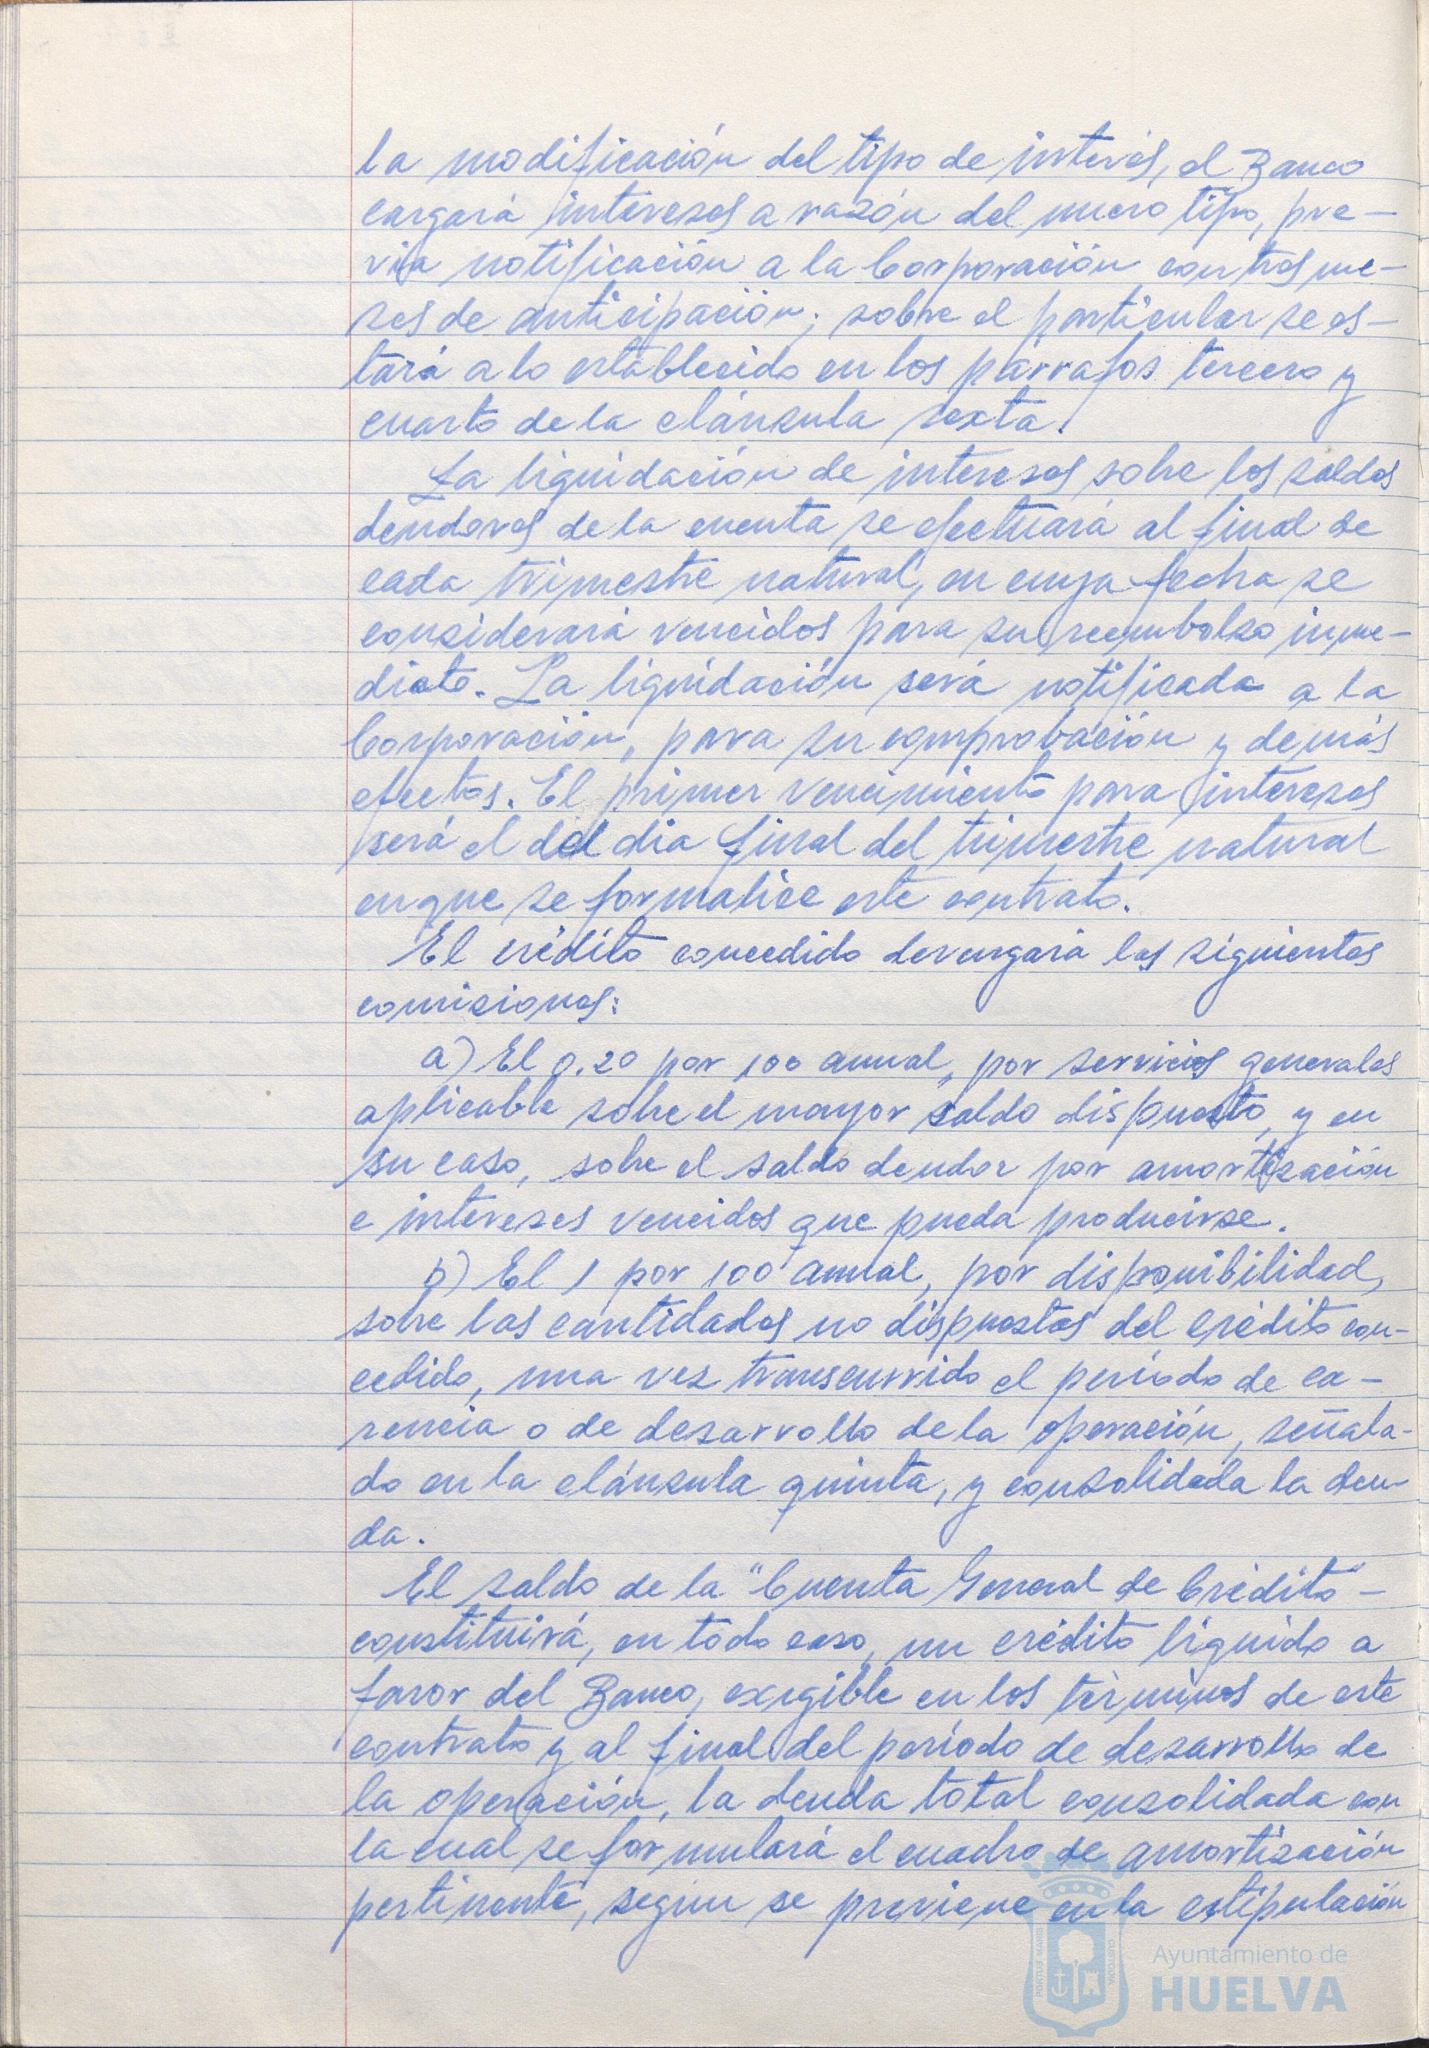 la modificación del tipo de interés, el Banco
cargará intereses a razón del nuevo tipo, pre-
via notificación a la Corporación con tres me-
ses de anticipación; sobre el particular se es-
tará a lo establecido en los párrafos tercero y
cuarto de la cláusula sexta.
La liquidación de intereses sobre los saldos
deudores de la cuenta se efectuará al final de
cada trimestre natural, en cuya fecha se
considerará vencidos para su reembolso inme-
diato. La liquidación será notificada a la
Corporación, para su comprobación y demás
efectos. El primer vencimiento para intereses
será el del dia final del trimestre natural
en que se formalice este contrato.
El crédito concedido devengará las siguientes
comisiones:
a) El 0.20 por 100 anual, por servicios generales
aplicable sobre el mayor saldo dispuesto, y en
su caso, sobre el saldo deudor por amortización
e intereses vencidos que pueda producirse.
b) El 1 por 100 anual, por disponibilidad,
sobre las cantidades no dispuestas del crédito con-
cedido, una vez transcurrido el período de ca-
rencia o de desarrollo de la operación, señala-
do en la cláusula quinta, y consolidada la deu-
da.
El saldo de la "Cuenta General de Crédito" -
constituirá, en todo caso, un crédito líquido a
favor del Banco, exigible en los términos de este
contrato y al final del período de desarrollo de
la operación, la deuda total consolidada con
la cual se formulará el cuadro de amortización
pertinente, según se previene en la estipulación
PORTUS MARIS
CUSTODIA
Ayuntamiento de
HUELVA